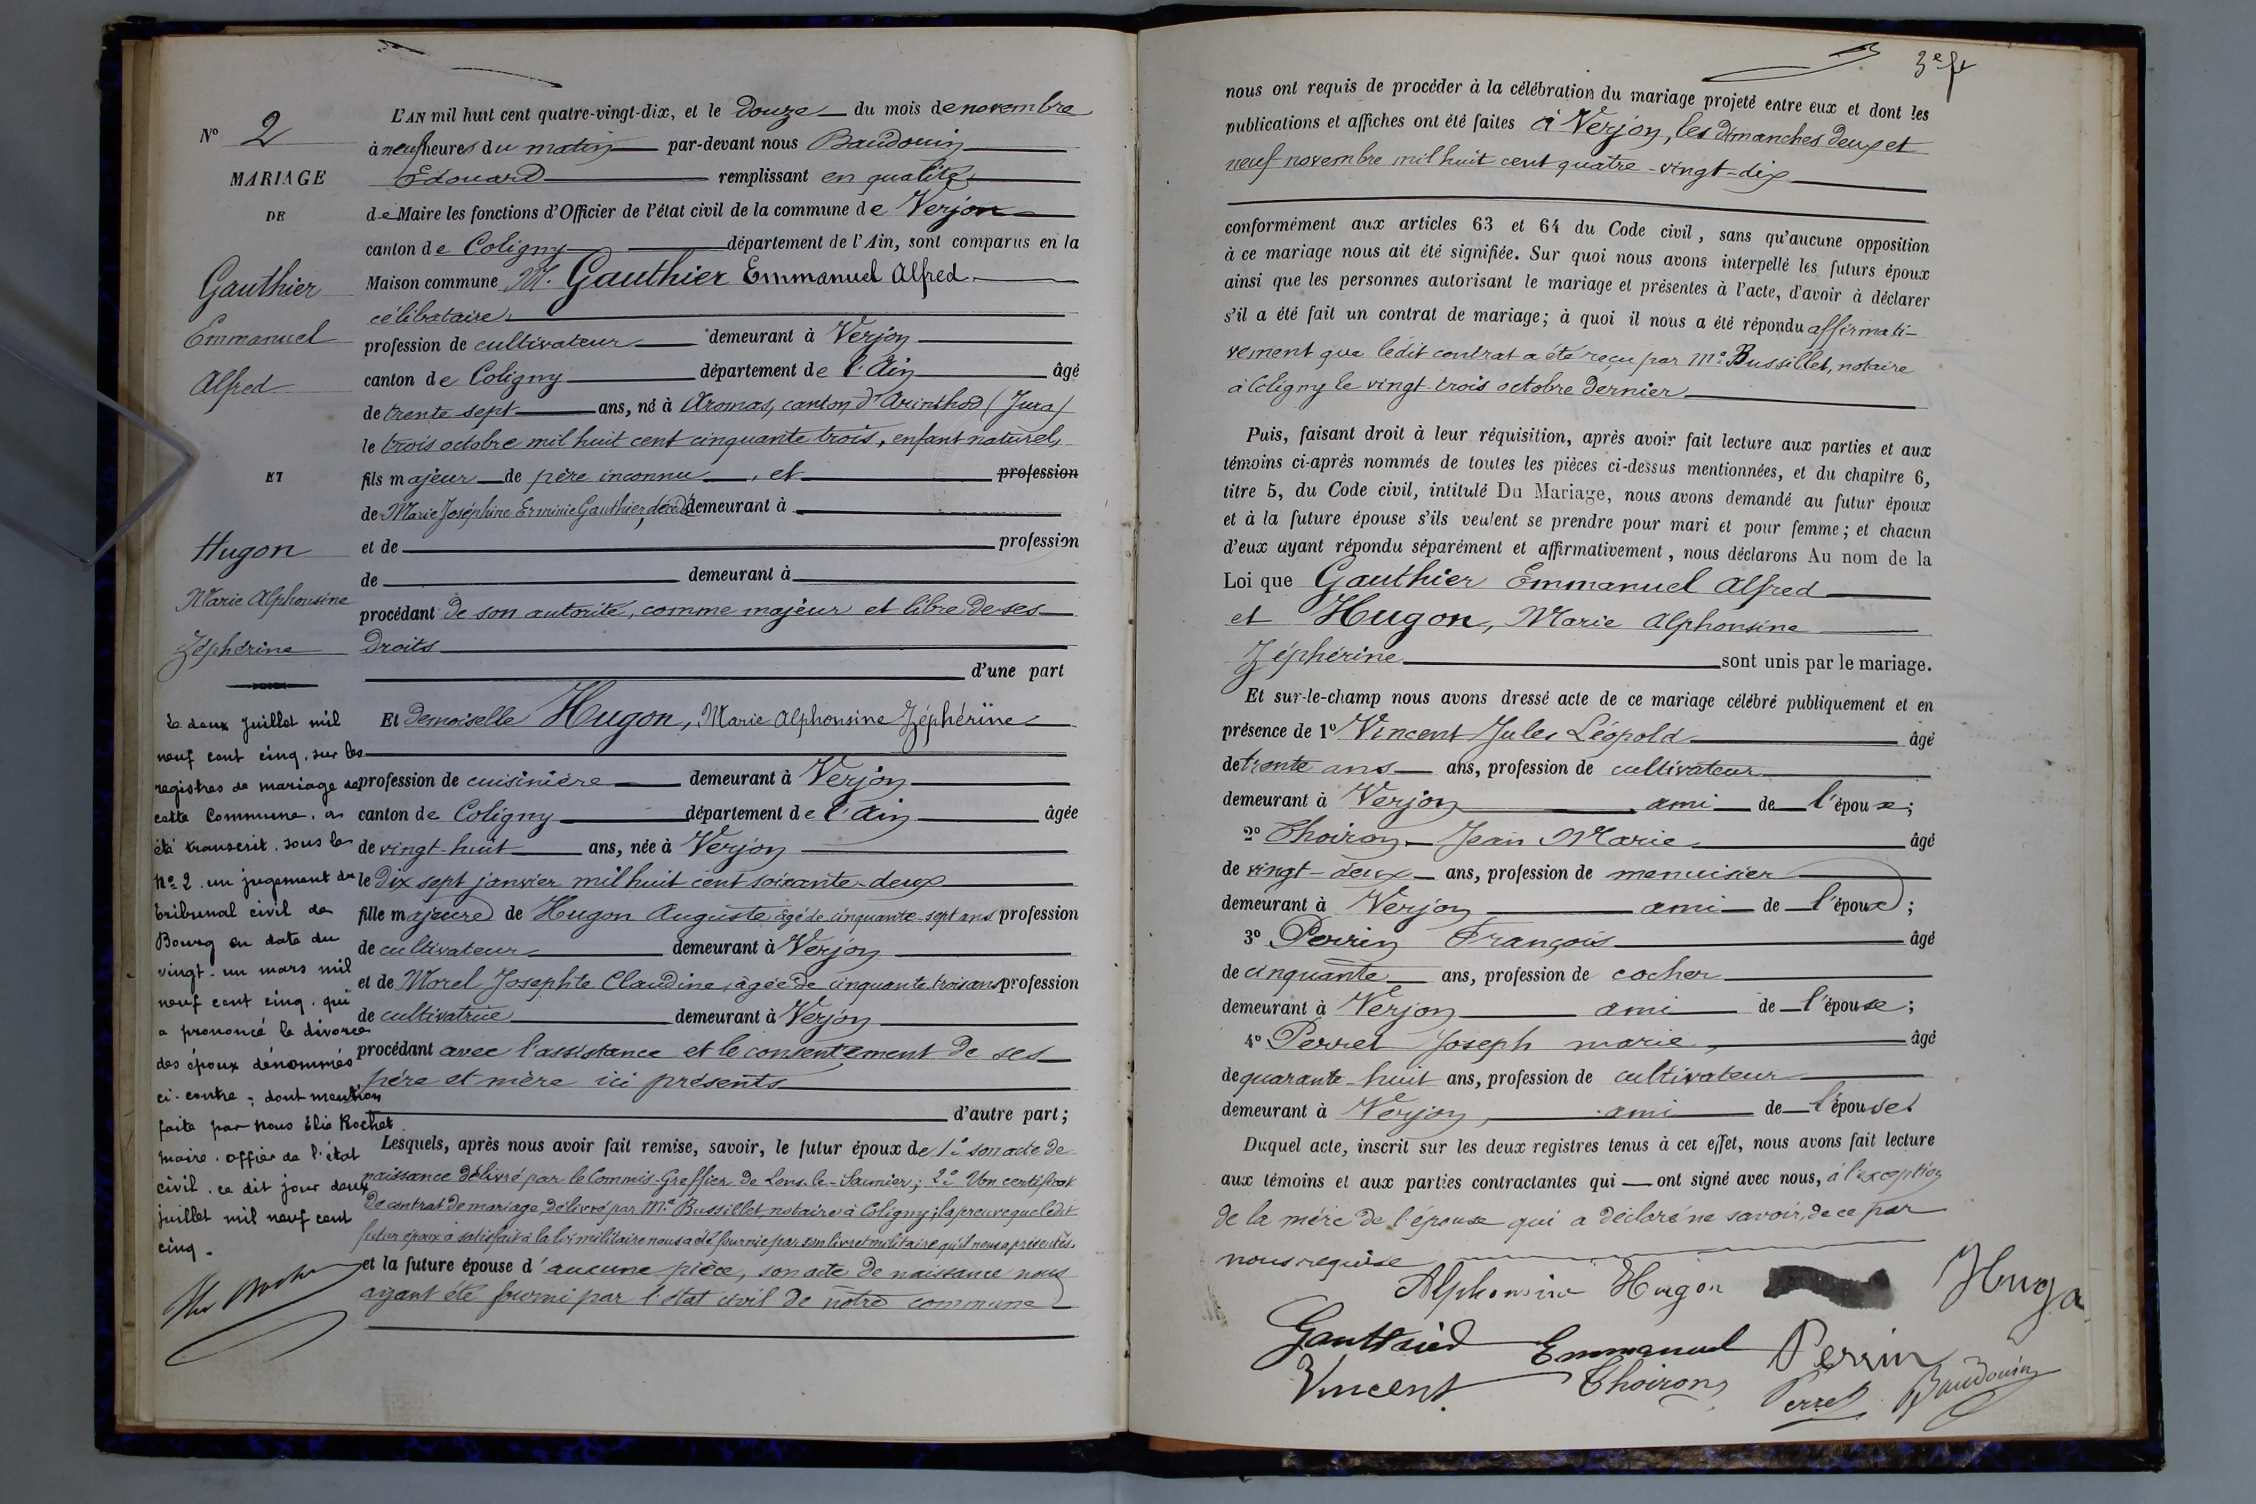 Nº 2
MARIAGE
DE
Gauthier
Emmanuel
Alfred
ET
Hugon
Marie Alphonsine
Zéphérine
Le deux Juillet mil
neuf cent cinq, sur les
registres de mariage de
cette Commune, a
été transcrit, sous le
Nº 2, un jugement du
tribunal civil de
Bourg en date du
vingt-un mars mil
neuf cent cinq, qui
a prononcé le divorce
des époux dénommés
ci-contre; dont mention
faite par nous Elie Rochet
maire, officier de l'état
civil, ce dit jour deux
juillet mil neuf cent
cinq.
L'AN mil huit cent quatre-vingt-dix, et le douze du mois de novembre
à neuf heures du matin par-devant nous Baudouin
Edouard remplissant en qualité
de Maire les fonctions d'Officier de l'état civil de la commune de Verjon
canton de Coligny département de l'Ain, sont comparus en la
Maison commune M. Gauthier Emmanuel Alfred
célibataire
profession de cultivateur demeurant à Verjon
canton de Coligny département de l'Ain âgé
de trente sept ans, né à Aromas, canton d'Arinthod (Jura)
le trois octobre mil huit cent cinquante trois, enfant naturel,
fils majeur de père inconnu, et profession
de Marie Joséphine Erminie Gauthier, décéd demeurant à
et de profession
de demeurant à
procédant de son autorité, comme majeur et libre de ses
Droits
d'une part
Et Demoiselle Hugon, Marie Alphonsine Zéphérine
profession de cuisinière demeurant à Verjon
canton de Coligny département de l'Ain âgée
de vingt-huit ans, née à Verjon
le Dix sept janvier mil huit cent soixante-deux
fille majeure de Hugon Auguste âgé de cinquante-sept ans profession
de cultivateur demeurant à Verjon
et de Morel Josephte Claudine, âgée de cinquante trois ans profession
de cultivatrice demeurant à Verjon
procédant avec l'assistance et le consentement de ses
père et mère ici présents
d'autre part;
Lesquels, après nous avoir fait remise, savoir, le futur époux de 1º son acte de
naissance délivré par le Commis-Greffier de Lons-le-Saunier; 2º Un certificat
de contrat de mariage, délivré par Mº Bussillet, notaire à Coligny; la preuve que ledit
futur époux a satisfait à la loi militaire nous a été fournie par son livret militaire qu'il nous a présenté.
et la future épouse d'aucune pièce, son acte de naissance nous
ayant été fourni par l'état civil de notre commune
3e ft
nous ont requis de procéder à la célébration du mariage projeté entre eux et dont les
publications et affiches ont été faites à Verjon, les dimanches deux et
neuf novembre mil huit cent quatre-vingt-dix
conformément aux articles 63 et 64 du Code civil, sans qu'aucune opposition
à ce mariage nous ait été signifiée. Sur quoi nous avons interpellé les futurs époux
ainsi que les personnes autorisant le mariage et présentes à l'acte, d'avoir à déclarer
s'il a été fait un contrat de mariage; à quoi il nous a été répondu affirmati-
vement que ledit contrat a été reçu par Mº Bussillet, notaire
à Coligny le vingt trois octobre dernier
Puis, faisant droit à leur réquisition, après avoir fait lecture aux parties et aux
témoins ci-après nommés de toutes les pièces ci-dessus mentionnées, et du chapitre 6,
titre 5, du Code civil, intitulé Du Mariage, nous avons demandé au futur époux
et à la future épouse s'ils veulent se prendre pour mari et pour femme; et chacun
d'eux ayant répondu séparément et affirmativement, nous déclarons Au nom de la
Loi que Gauthier Emmanuel Alfred
et Hugon, Marie Alphonsine
Zéphérine sont unis par le mariage.
Et sur-le-champ nous avons dressé acte de ce mariage célébré publiquement et en
présence de 1º Vincent Jules Léopold âgé
de trente ans ans, profession de cultivateur
demeurant à Verjon ami de l'époux;
2º Thoiron Jean Marie âgé
de vingt-deux ans, profession de menuisier
demeurant à Verjon ami de l'époux;
3º Perrin François âgé
de cinquante ans, profession de cocher
demeurant à Verjon ami de l'épouse;
4º Perret Joseph marie, âgé
de quarante-huit ans, profession de cultivateur
demeurant à Verjon, ami de l'épouse.
Duquel acte, inscrit sur les deux registres tenus à cet effet, nous avons fait lecture
aux témoins et aux parties contractantes qui ont signé avec nous, à l'exception
de la mère de l'épouse qui a déclaré ne savoir, de ce par
nous requise
Alphonsine Hugon Hugon
Gauthier Emmanuel Perrin
Vincent Thoiron Perret Baudouin